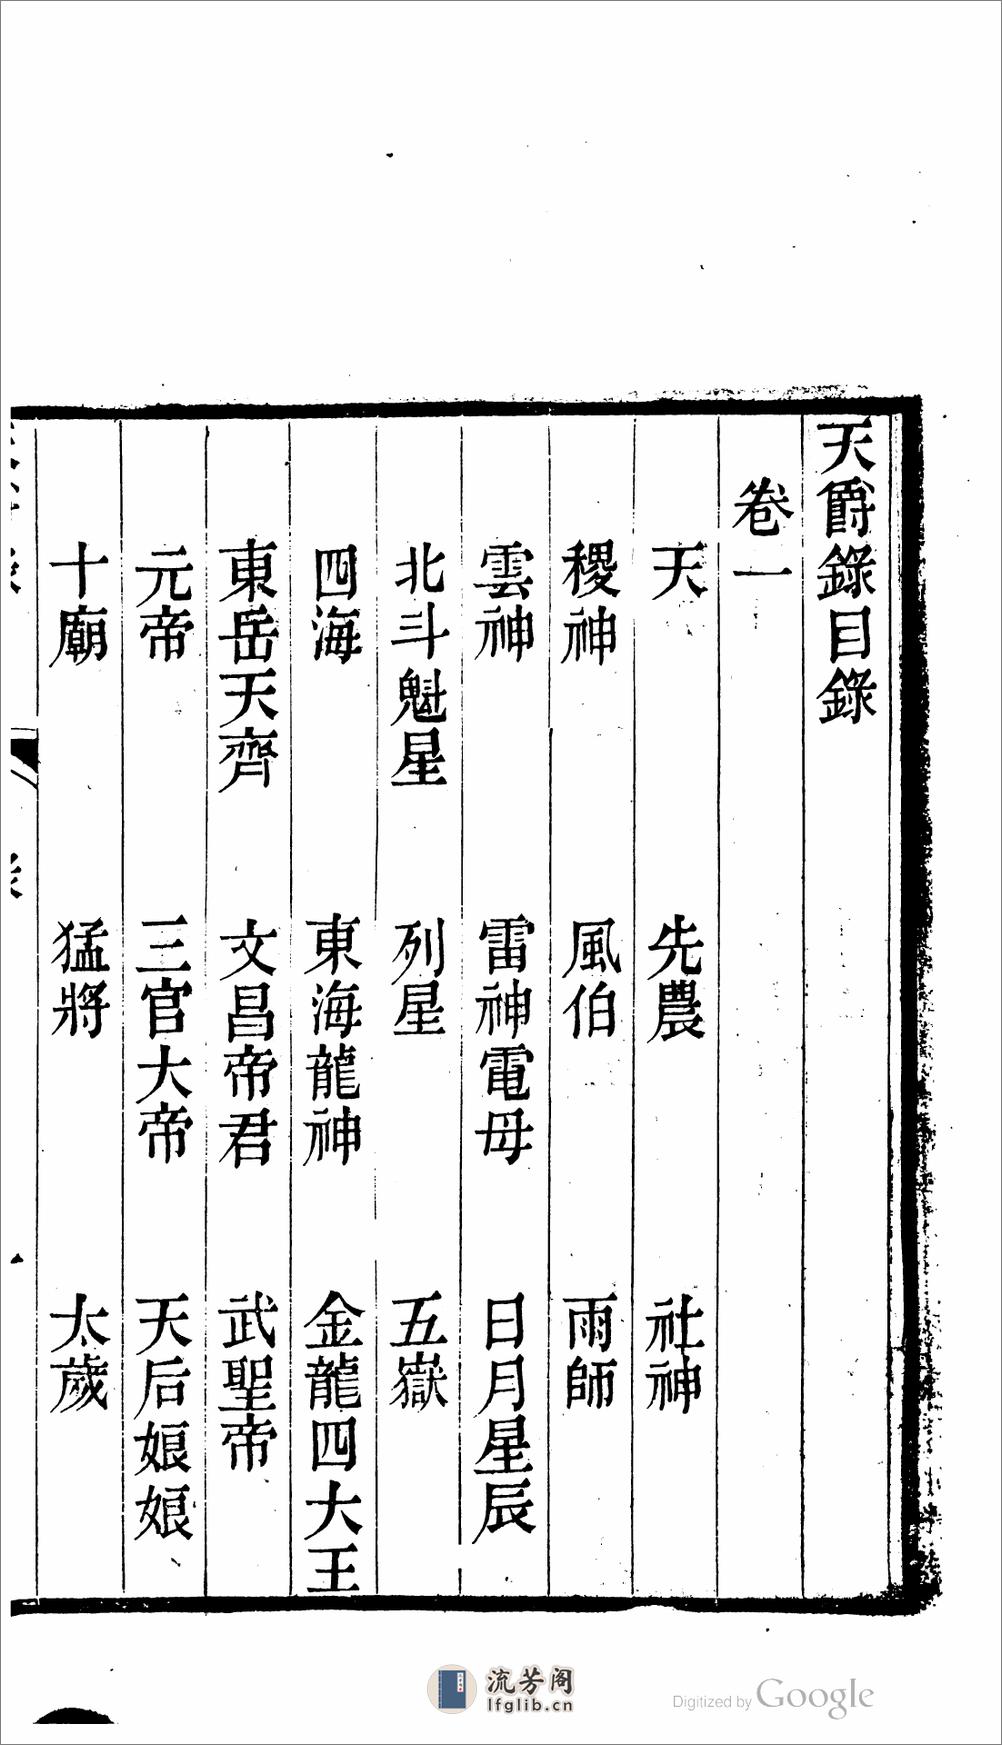 天爵錄目錄
卷一
天　先農　社神
稷神　風伯　雨師
雲神　雷神電母　日月星辰
北斗魁星　列星　五嶽
四海　東海龍神　金龍四大王
東岳天齊　文昌帝君　武聖帝
元帝　三官大帝　天后娘娘
十廟　猛將　太歲
流芳阁
lfglib.cn
Digitized by Google